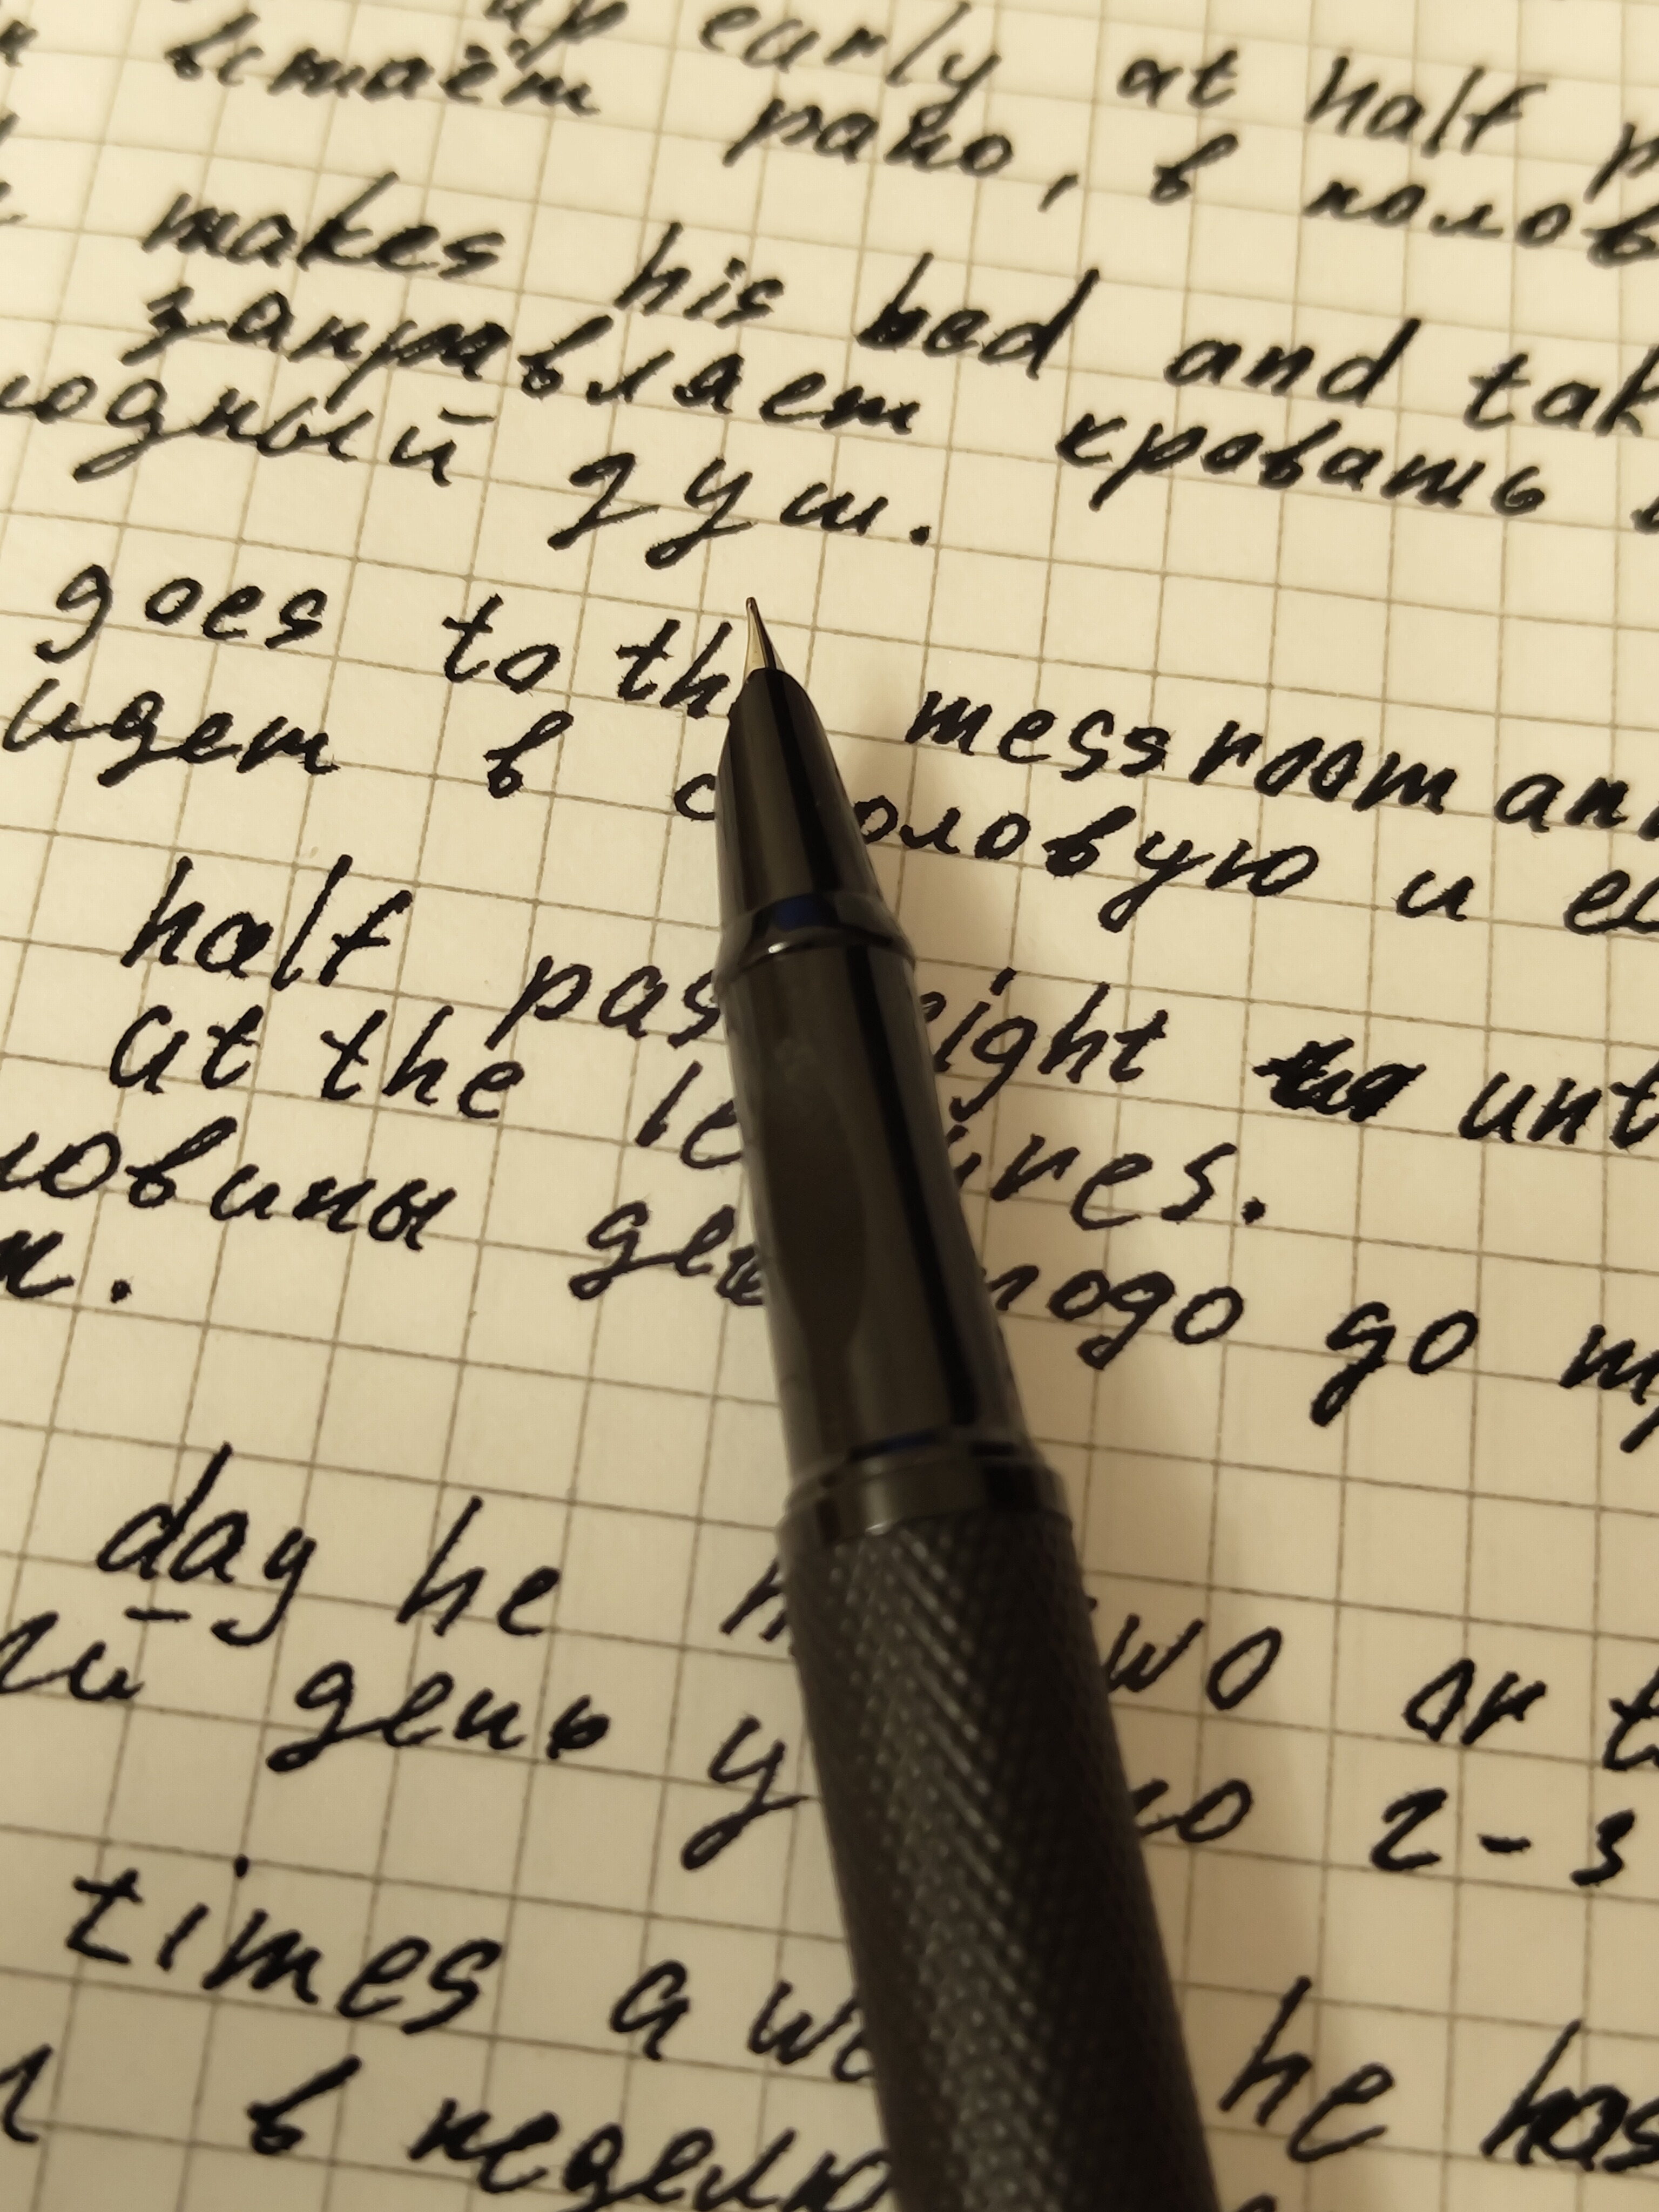 up early at half
встаёт рано, в полов
makes his bed and tak
заправляет кровать
лодный душ.
goes to th messroom an
идет в с оловую и е
half pas eight unt
at the le ures.
ловины дев ного до т
day he two or t
день у 2-3
times a we he has
в неделю